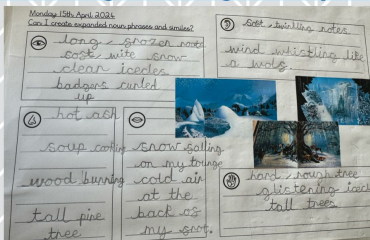 Monday 15th April 2024
Can I create expanded noun phrases and similes?
long, frozen roots
soft wite snow
clean icecles
badgers curled
up
soft, twinkling notes.
wind whistling like
a wolf.
hot ash
soup cooking
wood burning
tall pine
tree
snow falling
on my tounge
cold air
at the
back of
my throt.
hard, rough tree
glistening
tall trees